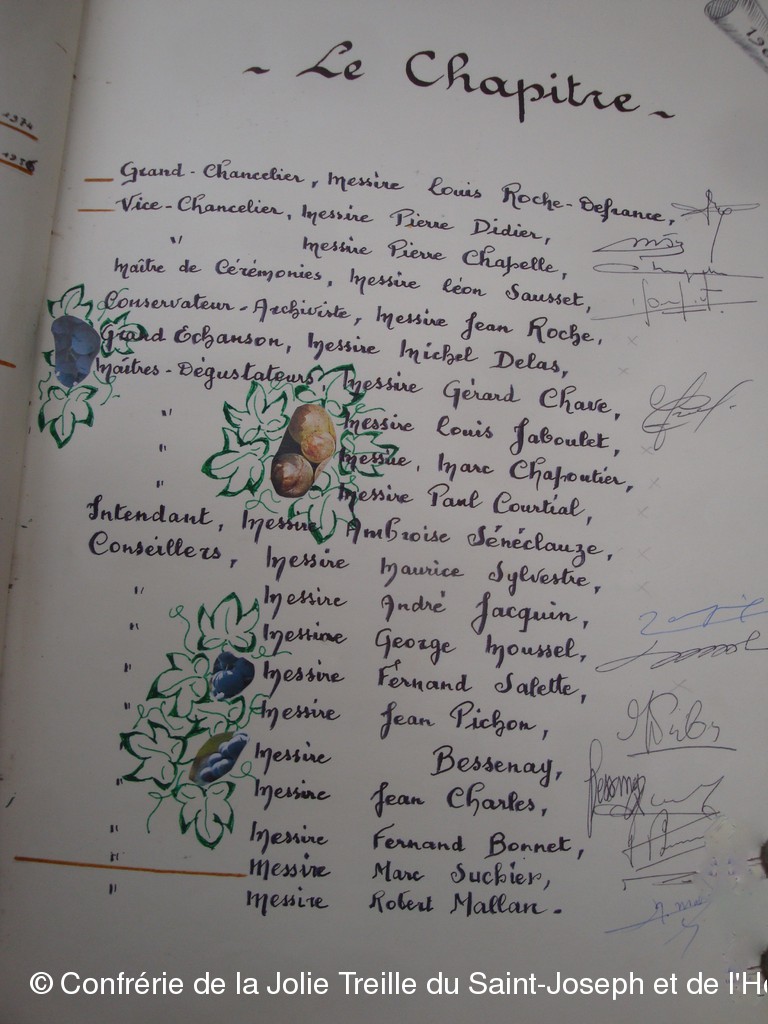 - Le Chapitre -
1974
1956
Grand-Chancelier, Messire Louis Roche-Defrance,
Vice-Chancelier, Messire Pierre Didier,
" Messire Pierre Chapelle,
Maître de Cérémonies, Messire Léon Sausset,
Conservateur-Archiviste, Messire Jean Roche,
Grand Echanson, Messire Michel Delas,
Maîtres-Dégustateurs, Messire Gérard Chave,
" Messire Louis Jaboulet,
" Messire, Marc Chapoutier,
" Messire Paul Courtial,
Intendant, Messire Ambroise Sénéclauze,
Conseillers, Messire Maurice Sylvestre,
" Messire André Jacquin,
" Messire George Moussel,
" Messire Fernand Salette,
" Messire Jean Pichon,
Messire Bessenay,
" Messire Jean Charles,
" Messire Fernand Bonnet,
" Messire Marc Suchier,
" Messire Robert Mallan.
© Confrérie de la Jolie Treille du Saint-Joseph et de l'He